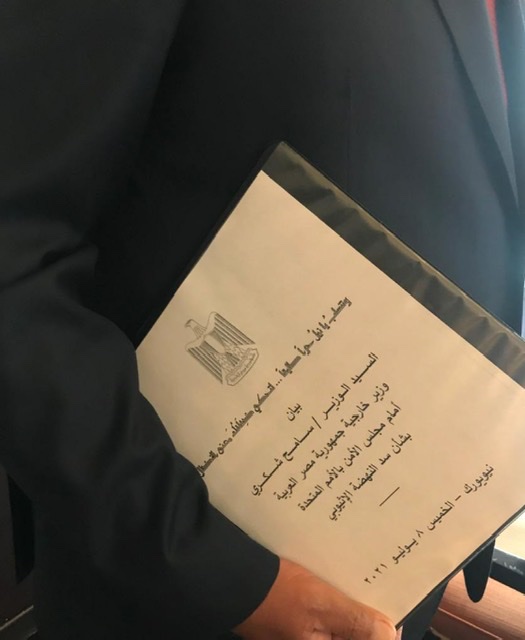 بيان
السيد الوزير / سامح شكري
وزير خارجية جمهورية مصر العربية
أمام مجلس الأمن بالأمم المتحدة
بشأن سد النهضة الإثيوبي
نيويورك - الخميس ٨ يوليو ٢٠٢١